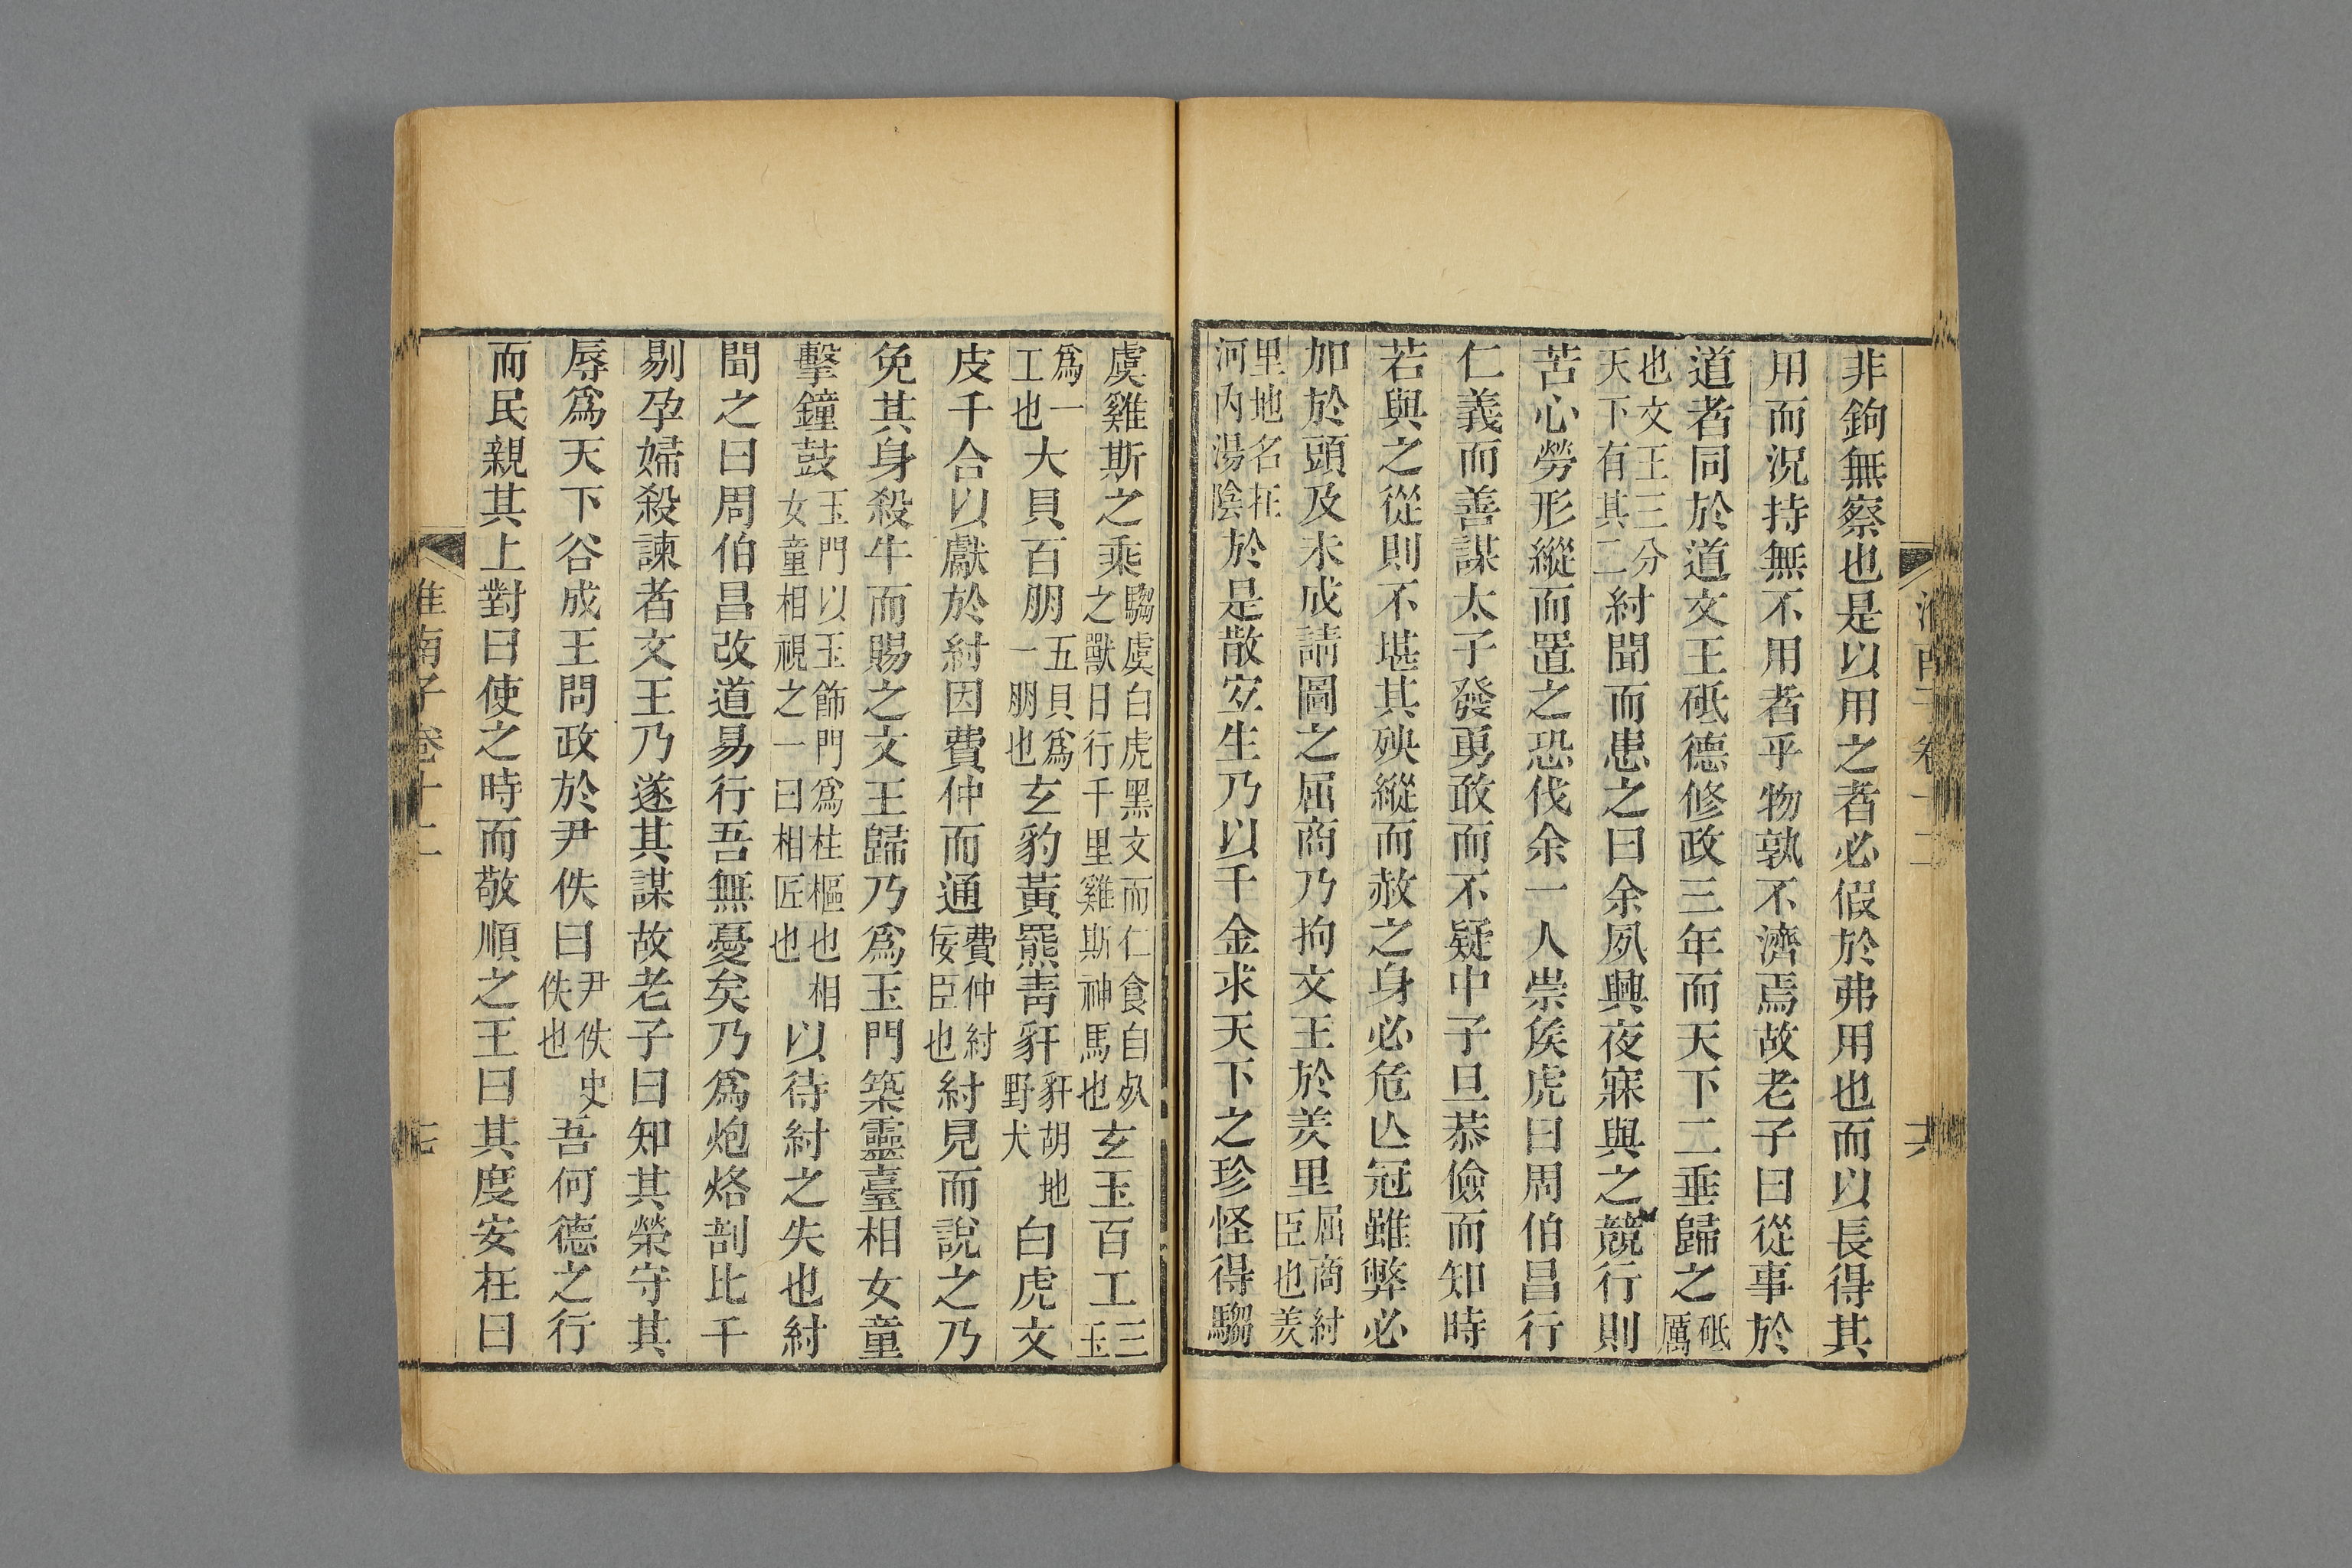 非鉤無察也是以用之者必假於弗用也而以長得其
用而況持無不用者乎物孰不濟焉故老子曰從事於
道者同於道文王砥德修政三年而天下二垂歸之砥厲
也文王三分天下有其二紂聞而患之曰余夙興夜寐與之競行則
苦心勞形縱而置之恐伐余一人崇矦虎曰周伯昌行
仁義而善謀太子發勇敢而不疑中子旦恭儉而知時
若與之從則不堪其殃縱而赦之身必危亾冠雖弊必
加於頭及未成請圖之屈商乃拘文王於羑里屈商紂臣也羑
里地名在河內湯陰於是散宜生乃以千金求天下之珍怪得騶
虞雞斯之乘騶虞白虎黑文而仁食自死之獸日行千里雞斯神馬也玄玉百工三玉
爲一工也大貝百朋五貝爲一朋也玄豹黃羆青豻豻胡地野犬白虎文
皮千合以獻於紂因費仲而通費仲紂佞臣也紂見而說之乃
免其身殺牛而賜之文王歸乃爲玉門築靈臺相女童
擊鐘鼓玉門以玉飾門爲柱樞也相女童相視之一曰相匠也以待紂之失也紂
聞之曰周伯昌改道易行吾無憂矣乃爲炮烙剖比干
剔孕婦殺諫者文王乃遂其謀故老子曰知其榮守其
辱爲天下谷成王問政於尹佚曰尹佚史佚也吾何德之行
而民親其上對曰使之時而敬順之王曰其度安在曰
淮南子卷十二